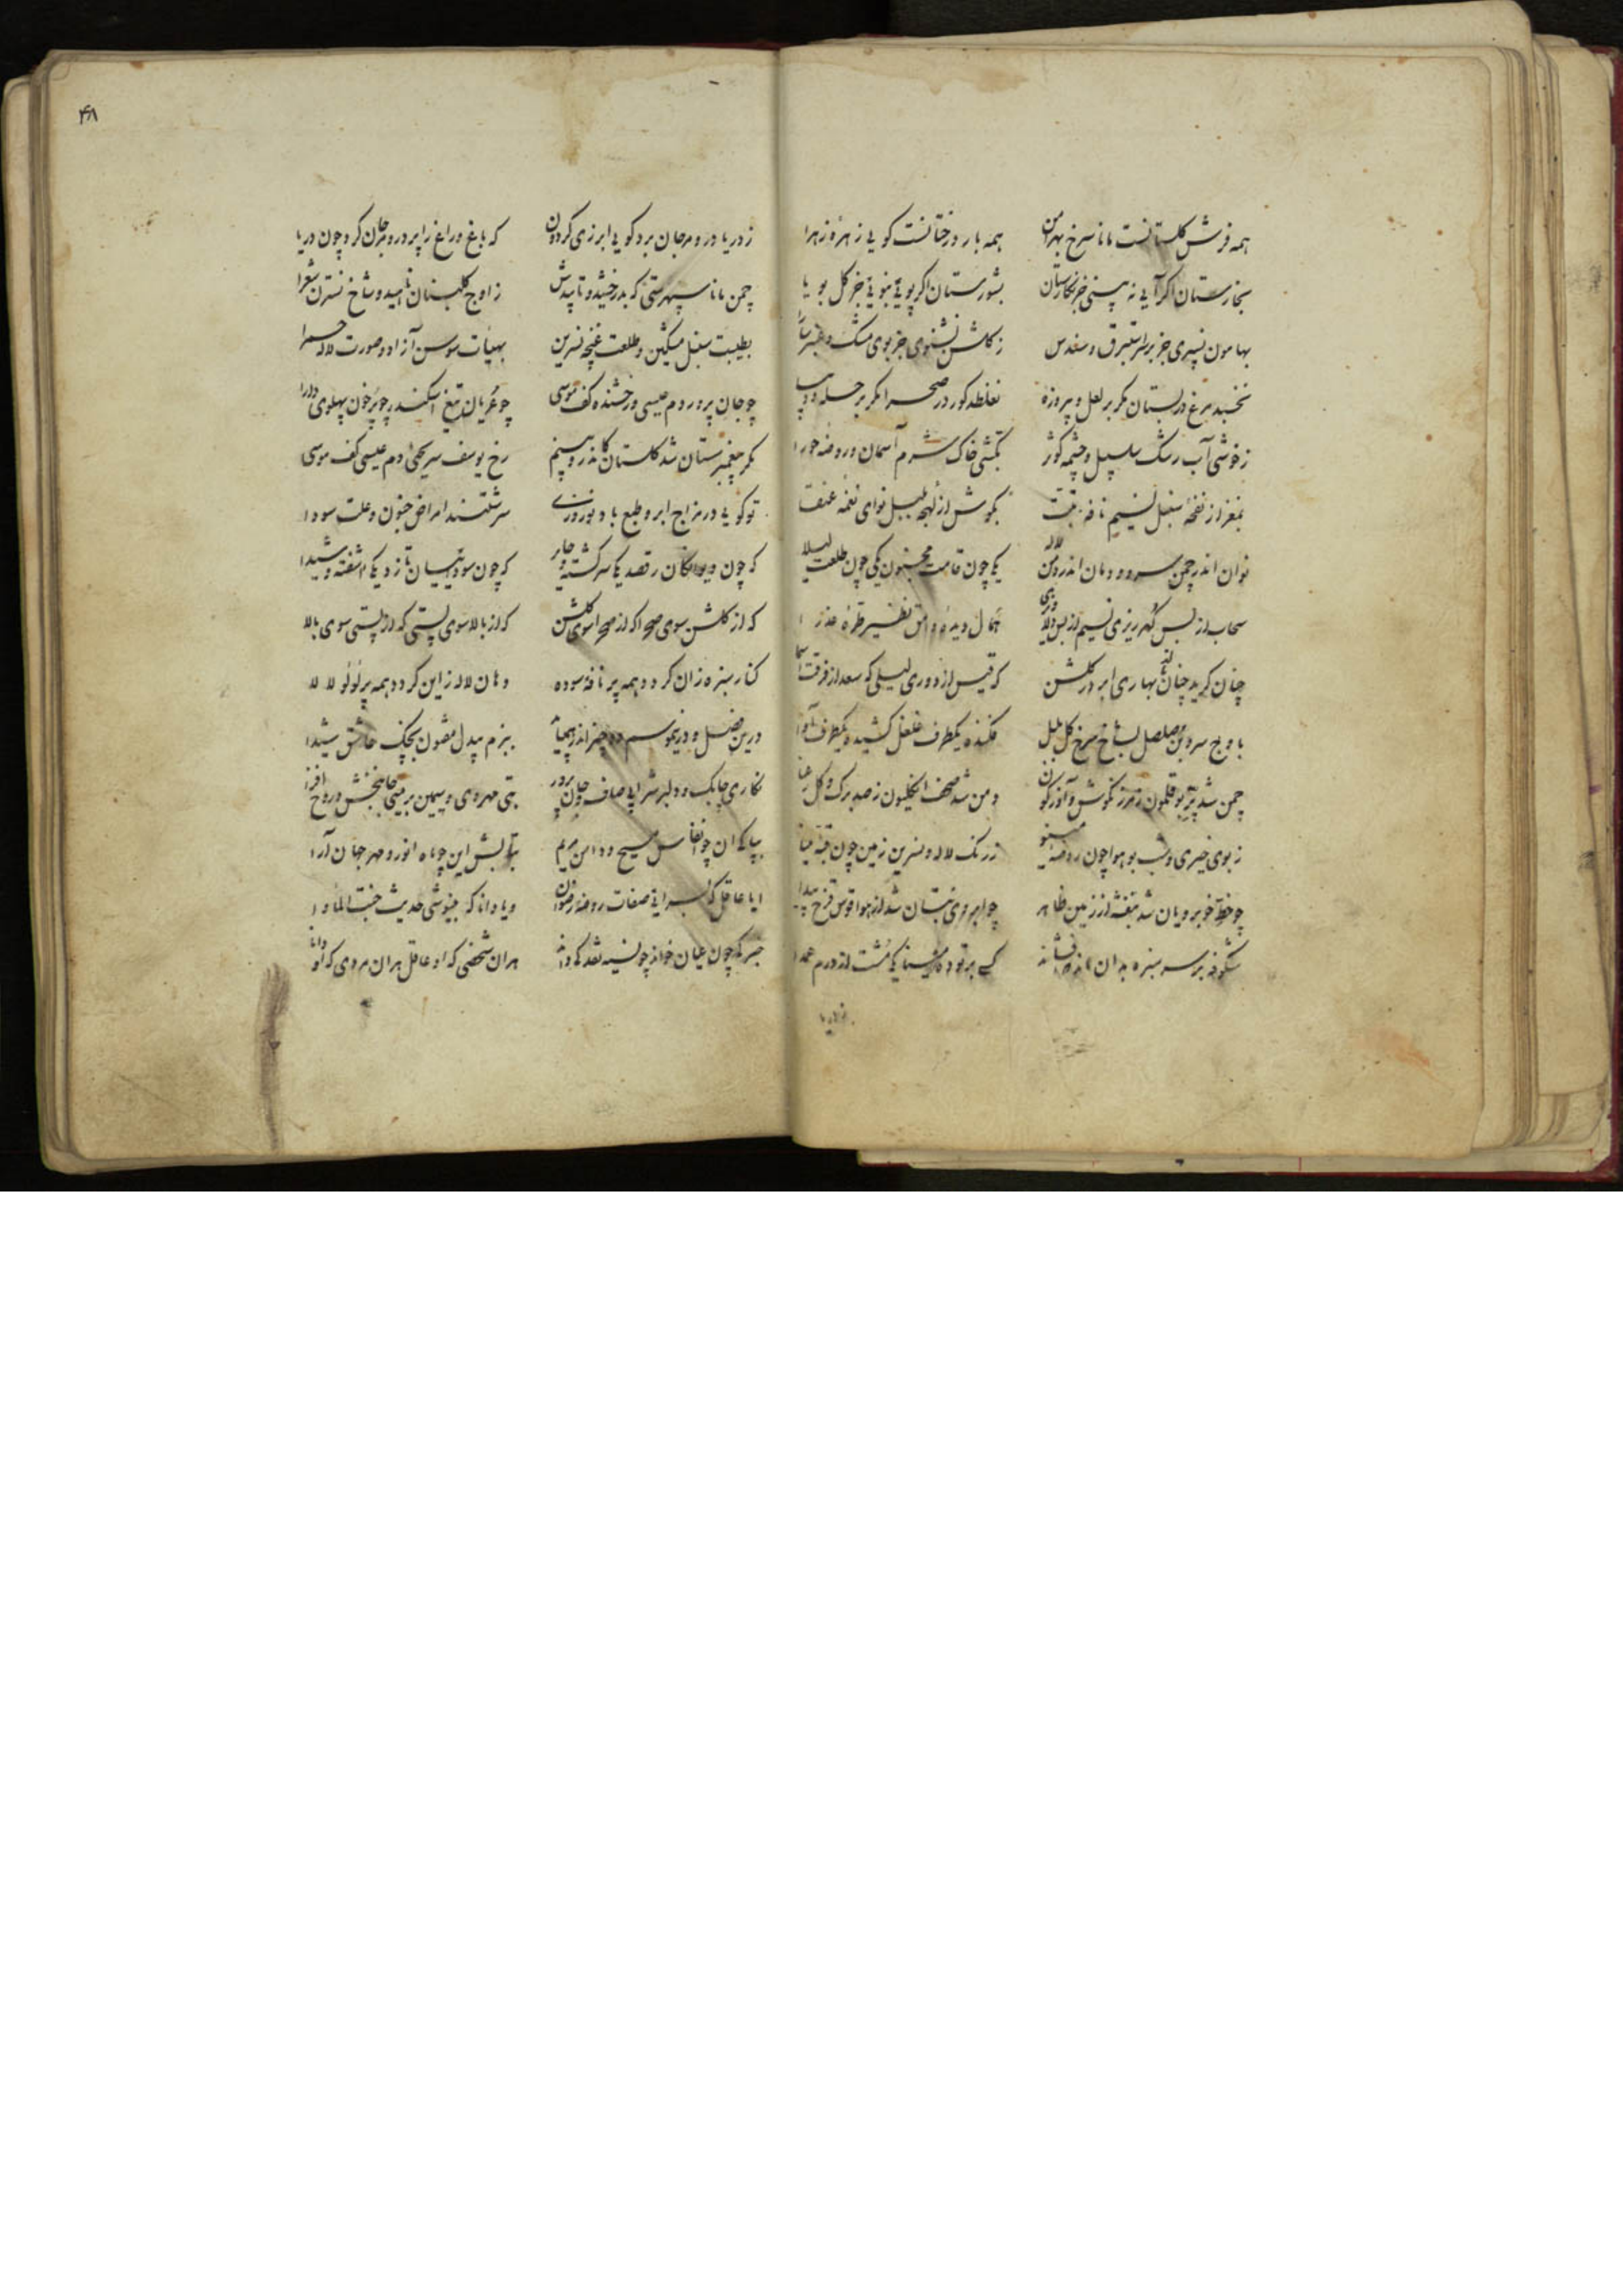 همه فرش گلستانست مانا سرخ بهرامن همه بار درختانست گویی زهرهٔ زهرا
بخارستان اگر آیی نه بینی جز نگارستان بشورستان اگر پویی نبویی جز گل بویا
بهامون نسپری جز بر استبرق و سندس ز گلشن نشنوی جز بوی مشک و عنبر سارا
نخسبد مرغ در بستان مگر بر لعل و پیروزه نغلطد گور در صحرا مگر بر حله و دیبا
ز خوشی آب رشک سلسبیل و چشمه کوثر بکشی خاک شرم آسمان و روضه حورا
بمغز از نفخهٔ سنبل نسیم نافه تبت بگوش از لهجه بلبل نوای نغمه عنقا
نوان اندر چمن سرو و دمان اندر دمن لاله یکی چون قامت مجنون یکی چون طلعت لیلا
سحاب از بس گهر ریزی نسیم از بس همال دیدهٔ وامق نظیر طرهٔ عذرا
چنان گرید چنان نالد بهاری ابر در گلشن که قیس از دوری لیلی که سعد از فرقت اسما
باوج سرو بن صلصل بشاخ سرخ گل بلبل فکنده یکطرف غلغل کشیده یکطرف آوا
چمن شد پر بوقلمون دمن شد صحف انگلیون ز صد برگ و گل رعنا
ز بوی خیری و شب بو هوا چون روضه مینو ز رنگ لاله و نسرین زمین چون قبه مینا
چو خط خوبرویان شد بنفشه از زمین ظاهر چو ابروی بتان شد از هوا قوس قزح پیدا
شکوفه بر سر سبزه بدان ماند مشت از درم عمدا
۴۸
ز دریا در و مرجان برد گویی ابر زی گردون که باغ و راغ را پر در و مرجان کرد چون دریا
چمن مانا سپهرستی که بدرخشید و تابیدش ز اوج گلبنان ناهید و شاخ نسترن شعرا
بطیبت سنبل مشکین و طلعت غنچه نسرین بهیئات سوسن آزاد و صورت لاله حمرا
چو جان پرور دم عیسی درخشنده کف موسی چو عریان تیغ اسکندر چو پر خون پهلوی دارا
مگر پیغمبرستان شد گلستان کاندرو بینم رخ یوسف سر یحیی دم عیسی کف موسی
تو گویی در مزاج ابر و طبع باد نوروزی سرشتند امراض جنون و علت سودا
که چون دیوانگان رقصد یکی سرگشته که چون سوداییان تازد یکی آشفته و شیدا
که از گلشن سوی صحرا که از صحرا سوی گلشن که از بالا سوی پستی که از پستی سوی بالا
کنار سبزه زان گردد همه پر نافه سوده دهان لاله زین گردد همه پر لؤلؤ لالا
درین فصل و درین موسم دو چیز اندر ببزم بیدل مفتون بچنگ عاشق شیدا
نگاری چابک و دلبر شرابی صاف و جان پرور بتی مهروی و سیمین بر میی جانبخش و روح افزا
بپاکی آن چو انفاس مسیح و دامن مریم بتابش این چو ماه انور و مهر جهان آرا
ایا عاقل که صفات روضه رضوان و یا دانا که مینوشی حدیث جنت المأوا
خبر کی چون عیان خواند چو نسیه نقد کی داند هر ان شخصی که او عاقل هر ان مردی که او دانا